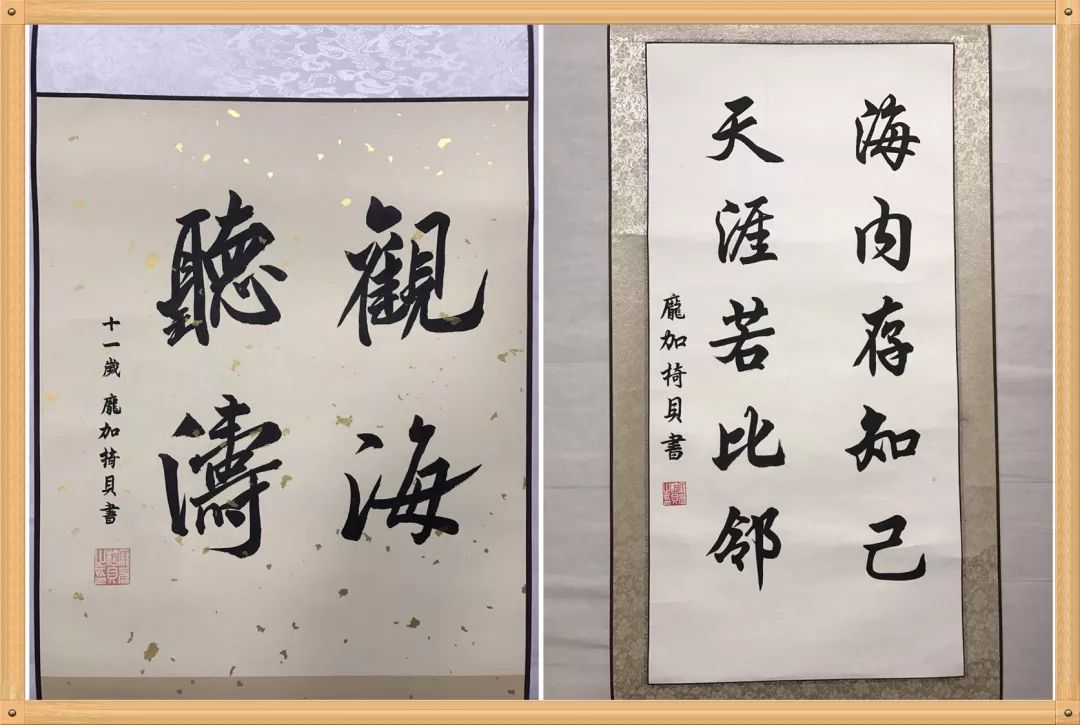 觀海
聽濤
十一歲 龐加掎貝書
海内存知己
天涯若比邻
龐加掎貝書